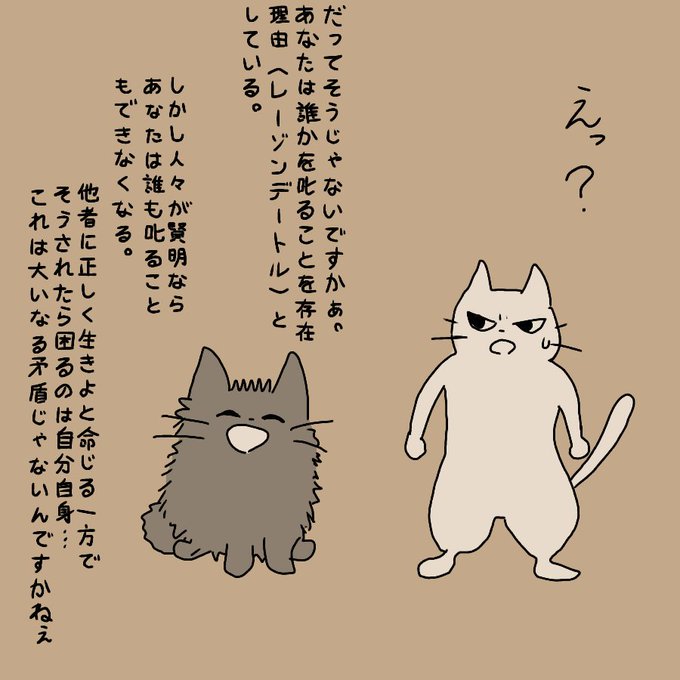 えっ?
だってそうじゃないですかぁ。
あなたは誰かを叱ることを存在
理由(レーゾンデートル)と
している。
しかし人々が賢明なら
あなたは誰も叱ること
もできなくなる。
他者に正しく生きよと命じる一方で
そうされたら困るのは自分自身…
これは大いなる矛盾じゃないんですかねぇ